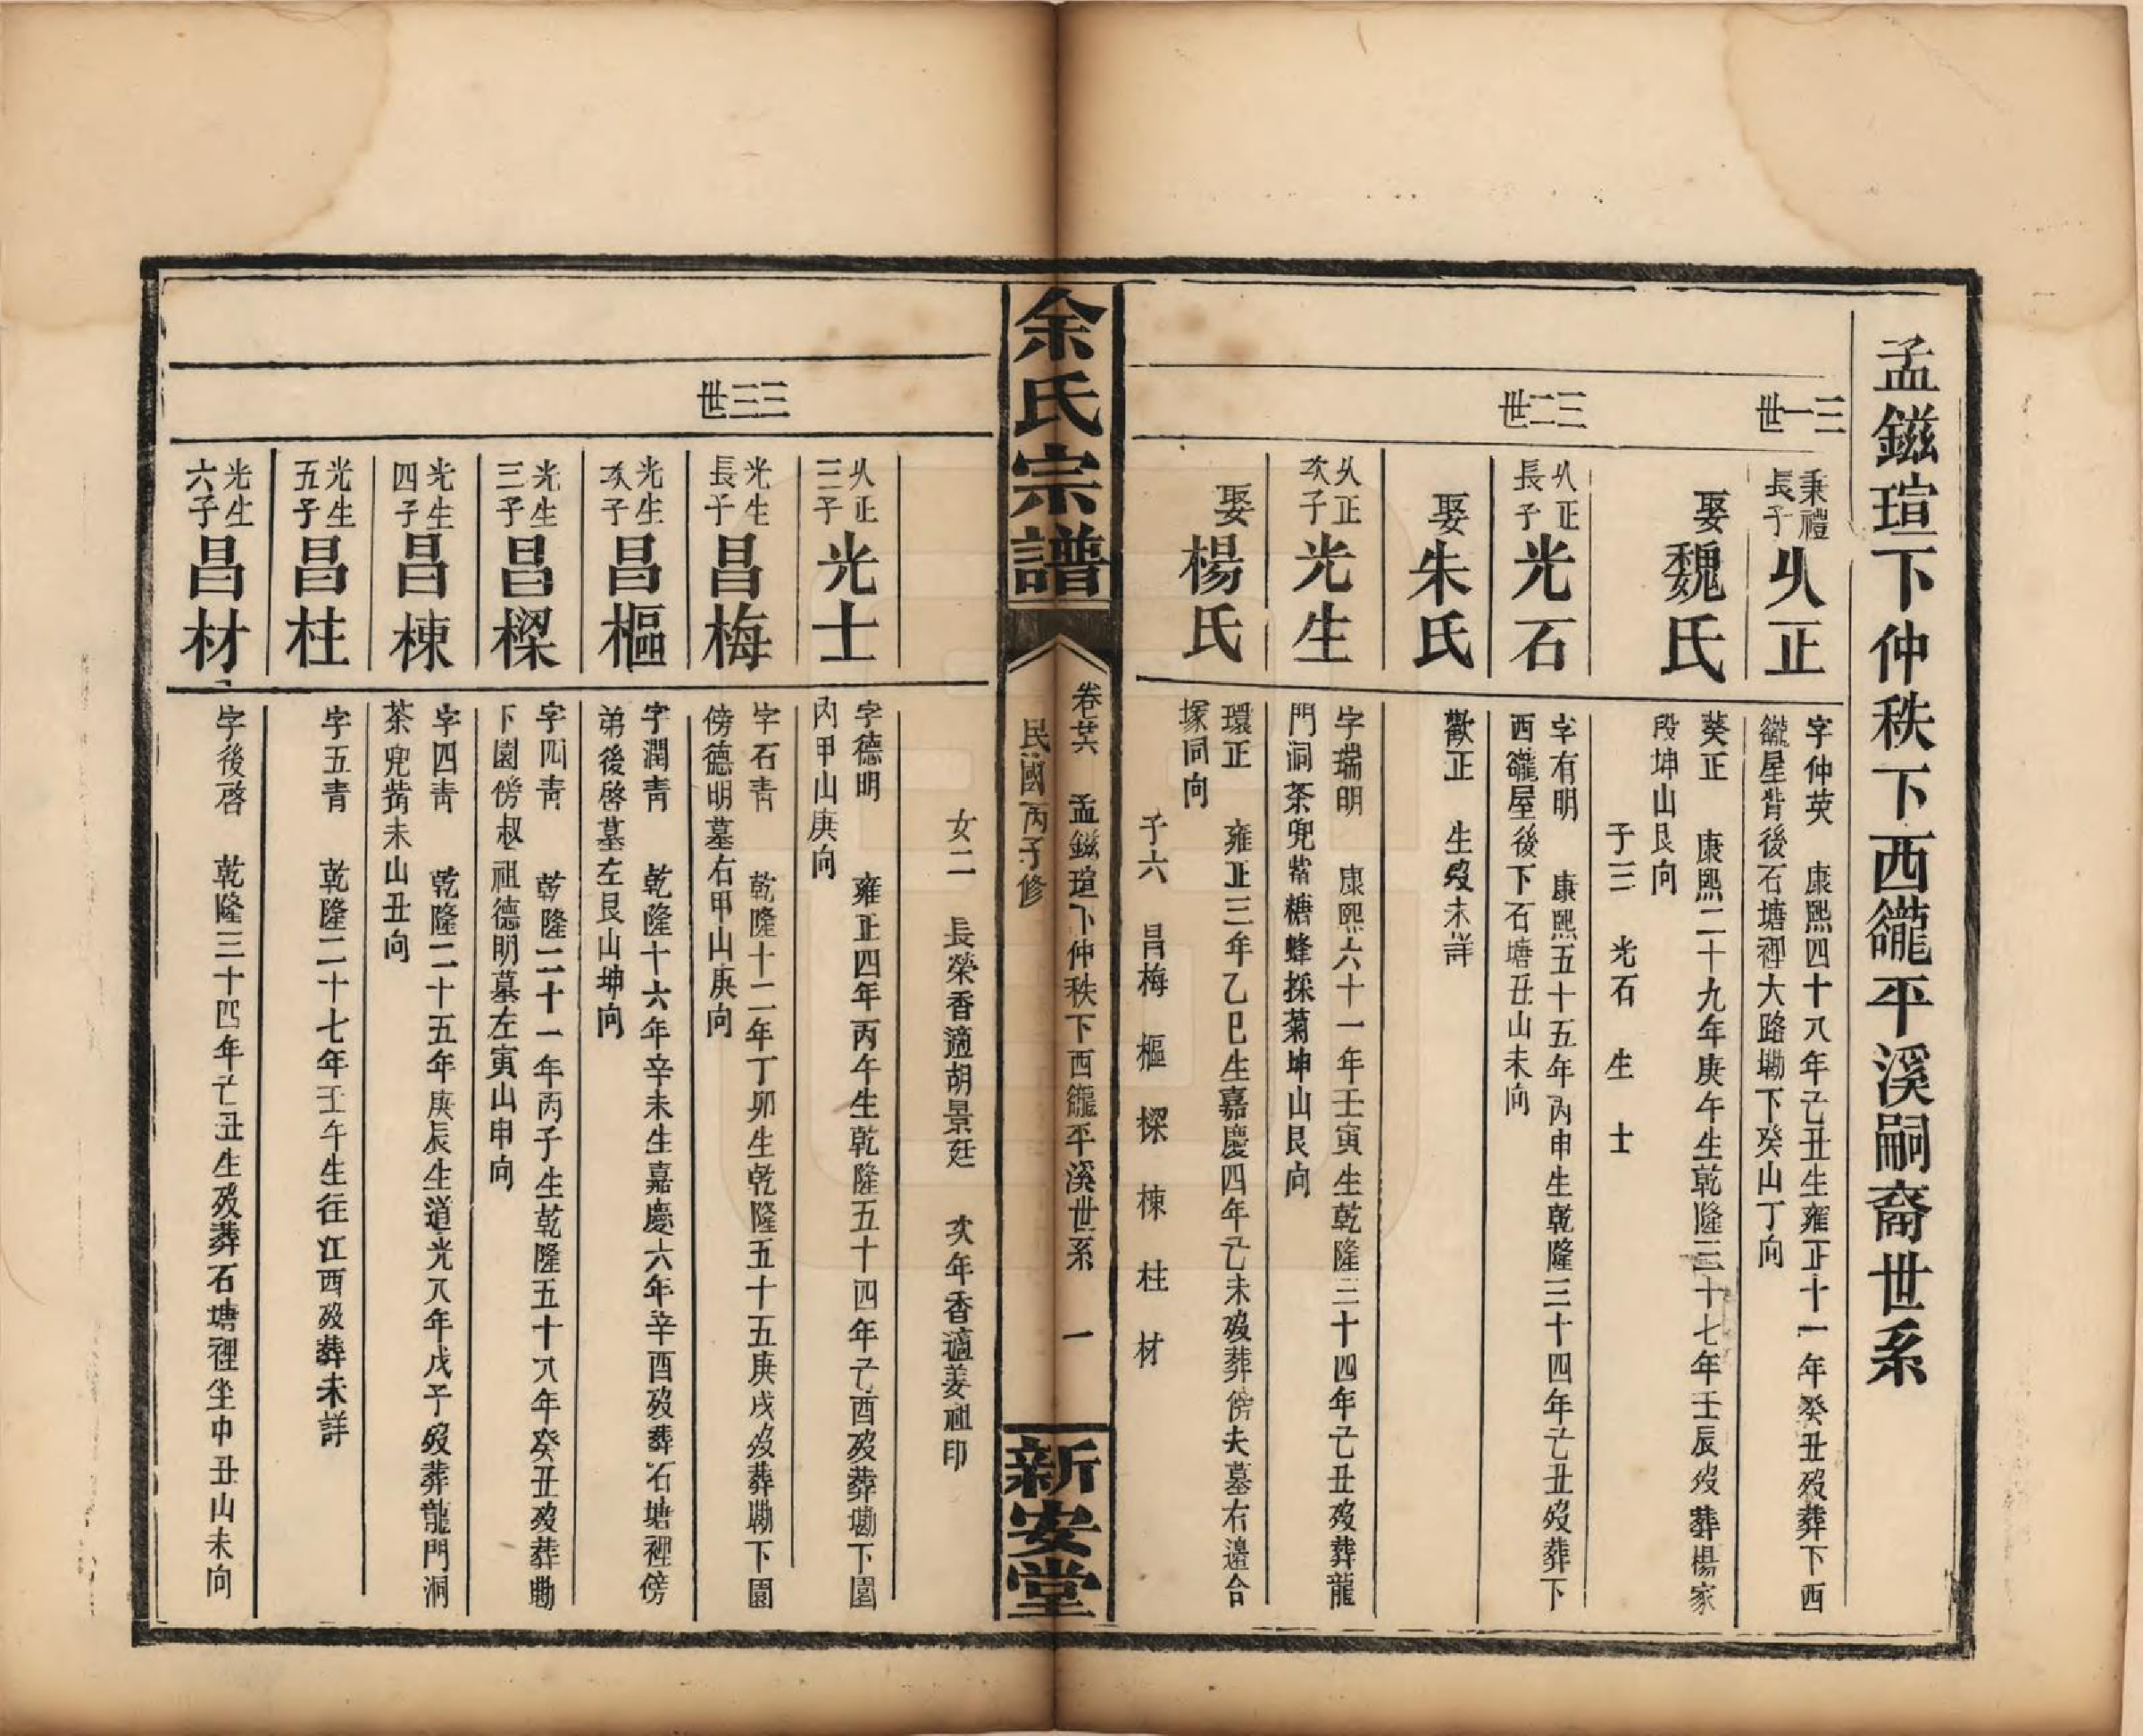 孟鎡瑄下仲秩下西𥫣平溪嗣裔世系
三一世
秉禮
長子
㐆正
字仲英　康熙四十八年己丑生雍正十一年癸丑歿葬下西
屋背後石塘裡大路墈下癸山丁向
娶
魏氏
葵正　康熙二十九年庚午生乾隆三十七年壬辰歿葬楊家
段坤山艮向
子三　光石　生　士
三二世
正
長子
光石
字有明　康熙五十五年丙申生乾隆三十四年己丑歿葬下
西屋後下石塘丑山未向
娶
朱氏
歡正　生歿未詳
正
次子
光生
字瑞明　康熙六十一年壬寅生乾隆三十四年己丑歿葬龍
門洞茶兜糖蜂採菊坤山艮向
娶
楊氏
環正　雍正三年乙巳生嘉慶四年己未歿葬傍夫墓右邉合
塚同向
子六　昌梅　樞　樑　棟　柱　材
余氏宗譜
卷廿六　孟鎡瑄下仲秩下西平溪世系　一
民國丙子修
新安堂
女二　長榮香適胡景廷　次年香適姜祖印
正
三子
光士
字德明　雍正四年丙午生乾隆五十四年己酉歿葬墈下園
內甲山庚向
三三世
光生
長子
昌梅
字石青　乾隆十二年丁卯生乾隆五十五庚戌歿葬墈下園
傍德明墓右甲山庚向
光生
次子
昌樞
字潤青　乾隆十六年辛未生嘉慶六年辛酉歿葬石塘裡傍
弟後啓墓左艮山坤向
光生
三子
昌樑
字四青　乾隆二十一年丙子生乾隆五十八年癸丑歿葬墈
下園傍叔祖德明墓左寅山申向
光生
四子
昌棟
字四青　乾隆二十五年庚辰生道光八年戊子歿葬龍門洞
茶兜未山丑向
光生
五子
昌柱
字五青　乾隆二十七年壬午生往江西歿葬未詳
光生
六子
昌材
字後啓　乾隆三十四年己丑生歿葬石塘裡坐中丑山未向